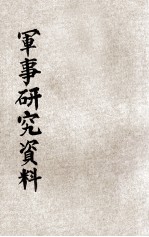 軍事研究資料